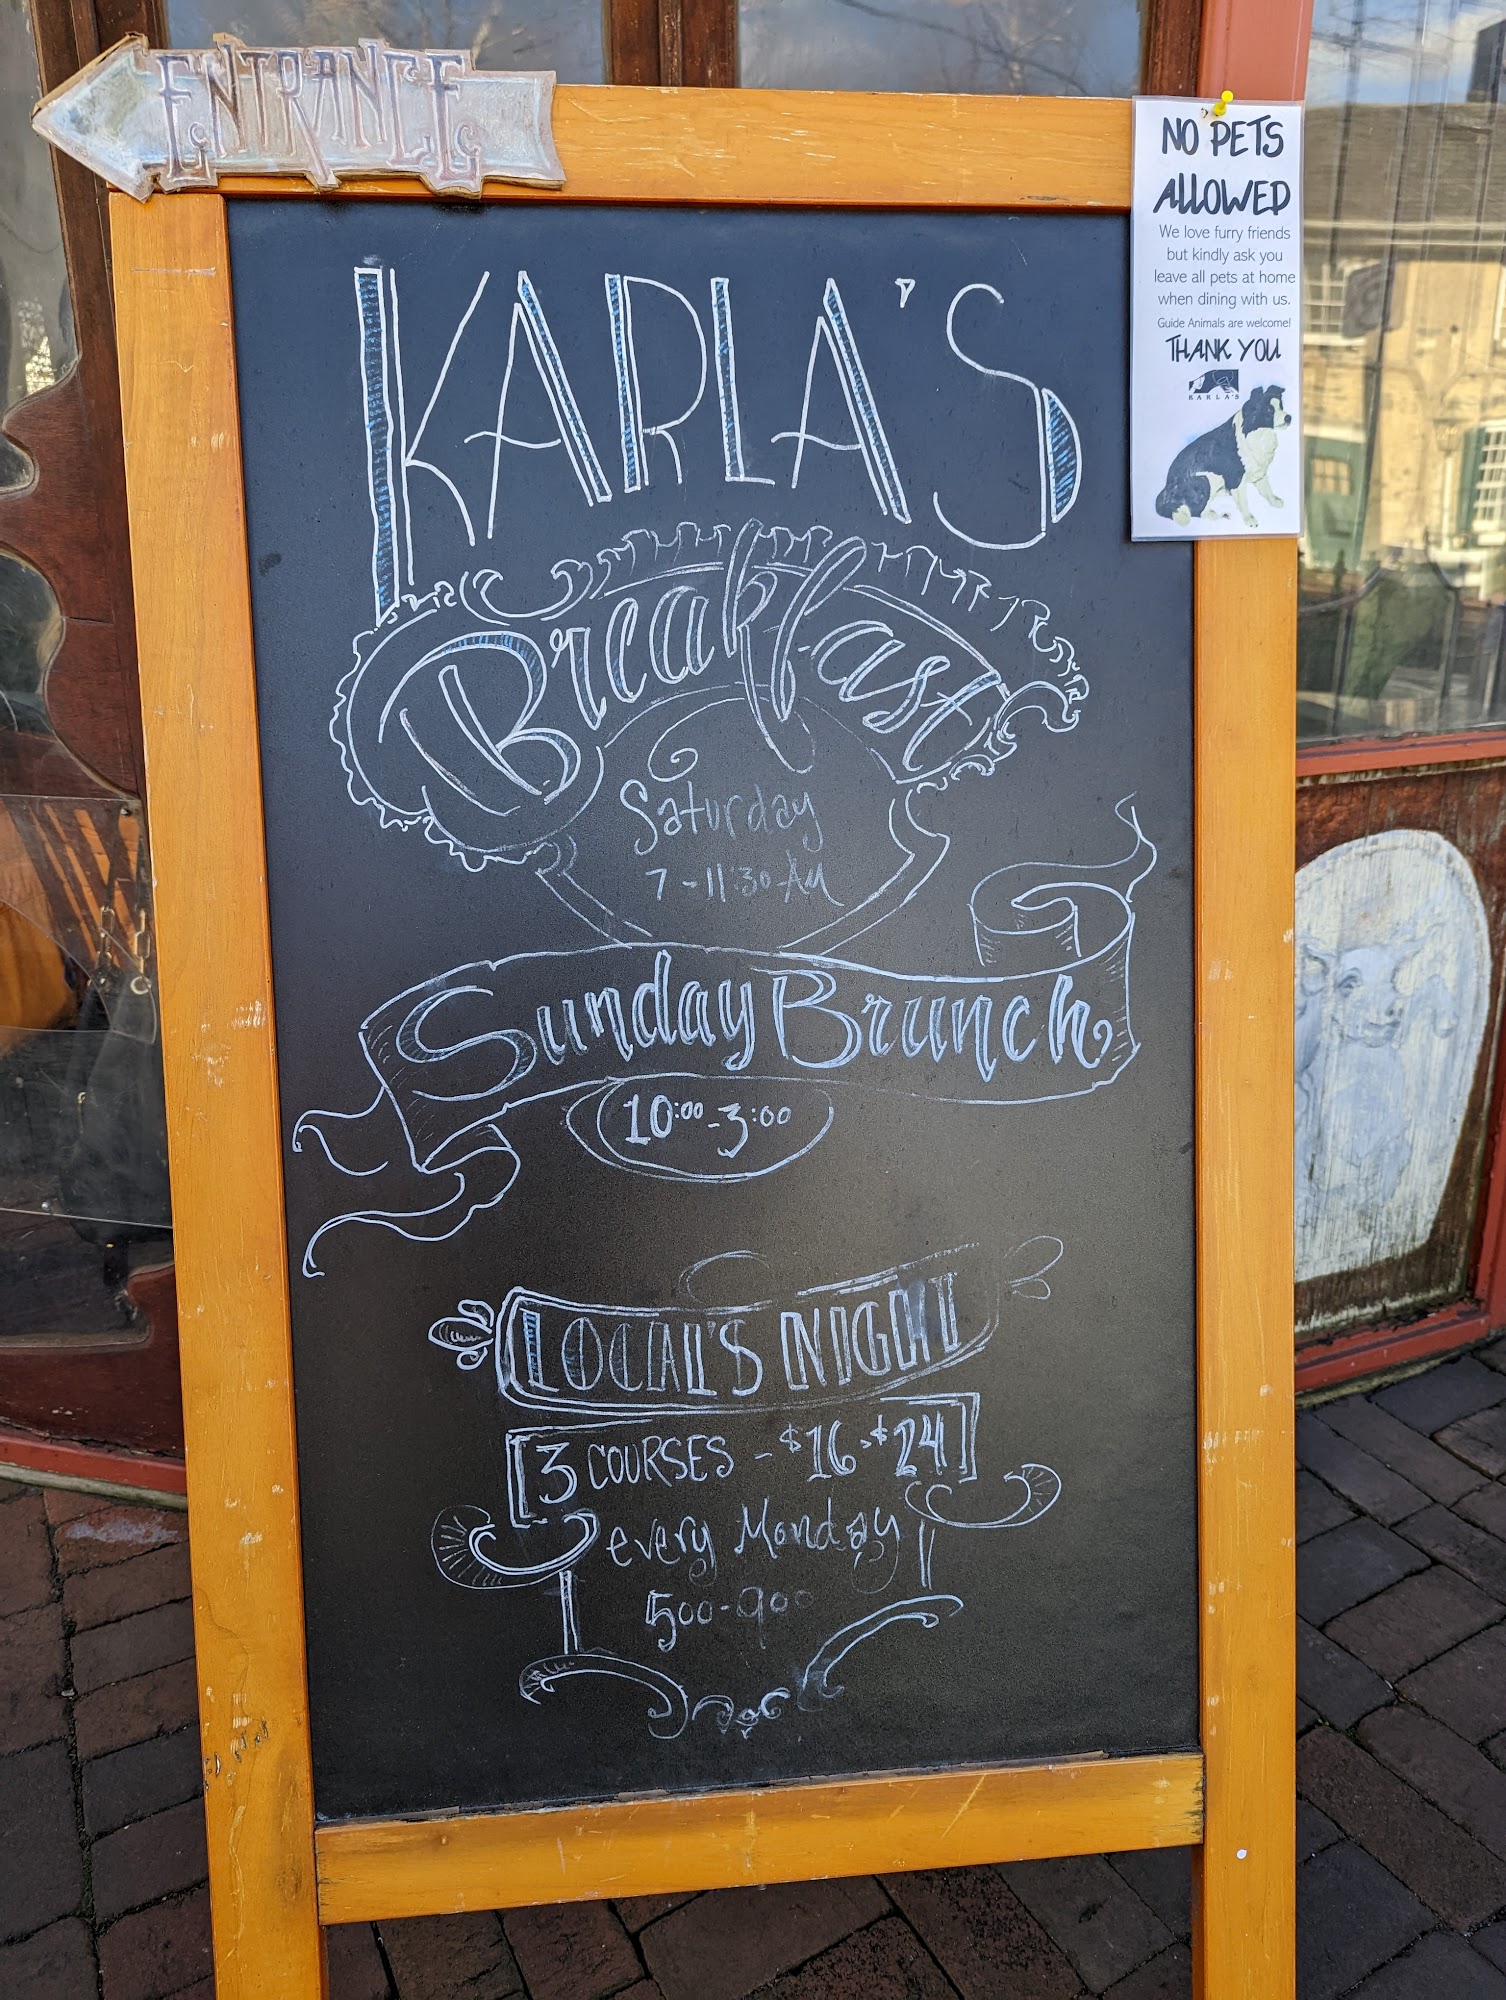 ENTRANCE
NO PETS
ALLOWED
We love furry friends
but kindly ask you
leave all pets at home
when dining with us.
Guide Animals are welcome!
THANK YOU
KARLA'S
KARLA'S
Breakfast
Saturday
7-11:30 AM
Sunday Brunch
10:00-3:00
LOCAL'S NIGHT
3 COURSES - $16-$24
every Monday
500-900